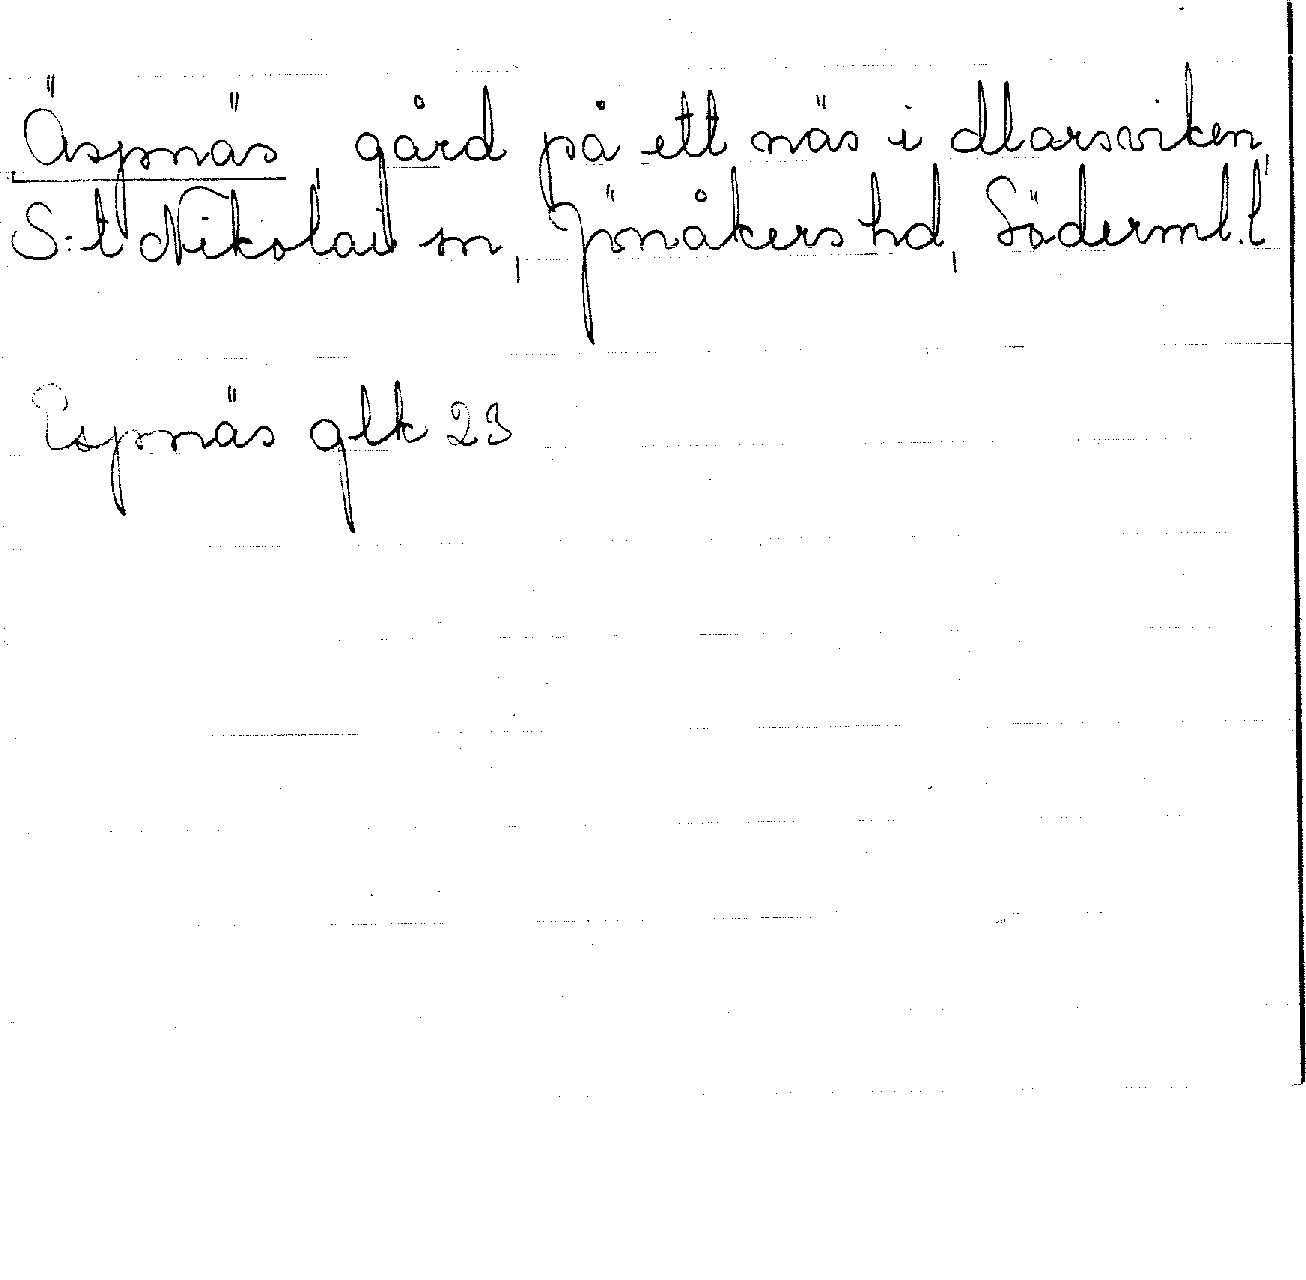 Äspnäs, gård på ett näs i Marsviken,
S:t Nikolai sn, Jönåkers hd, Söderml.l
Espnäs glk 23